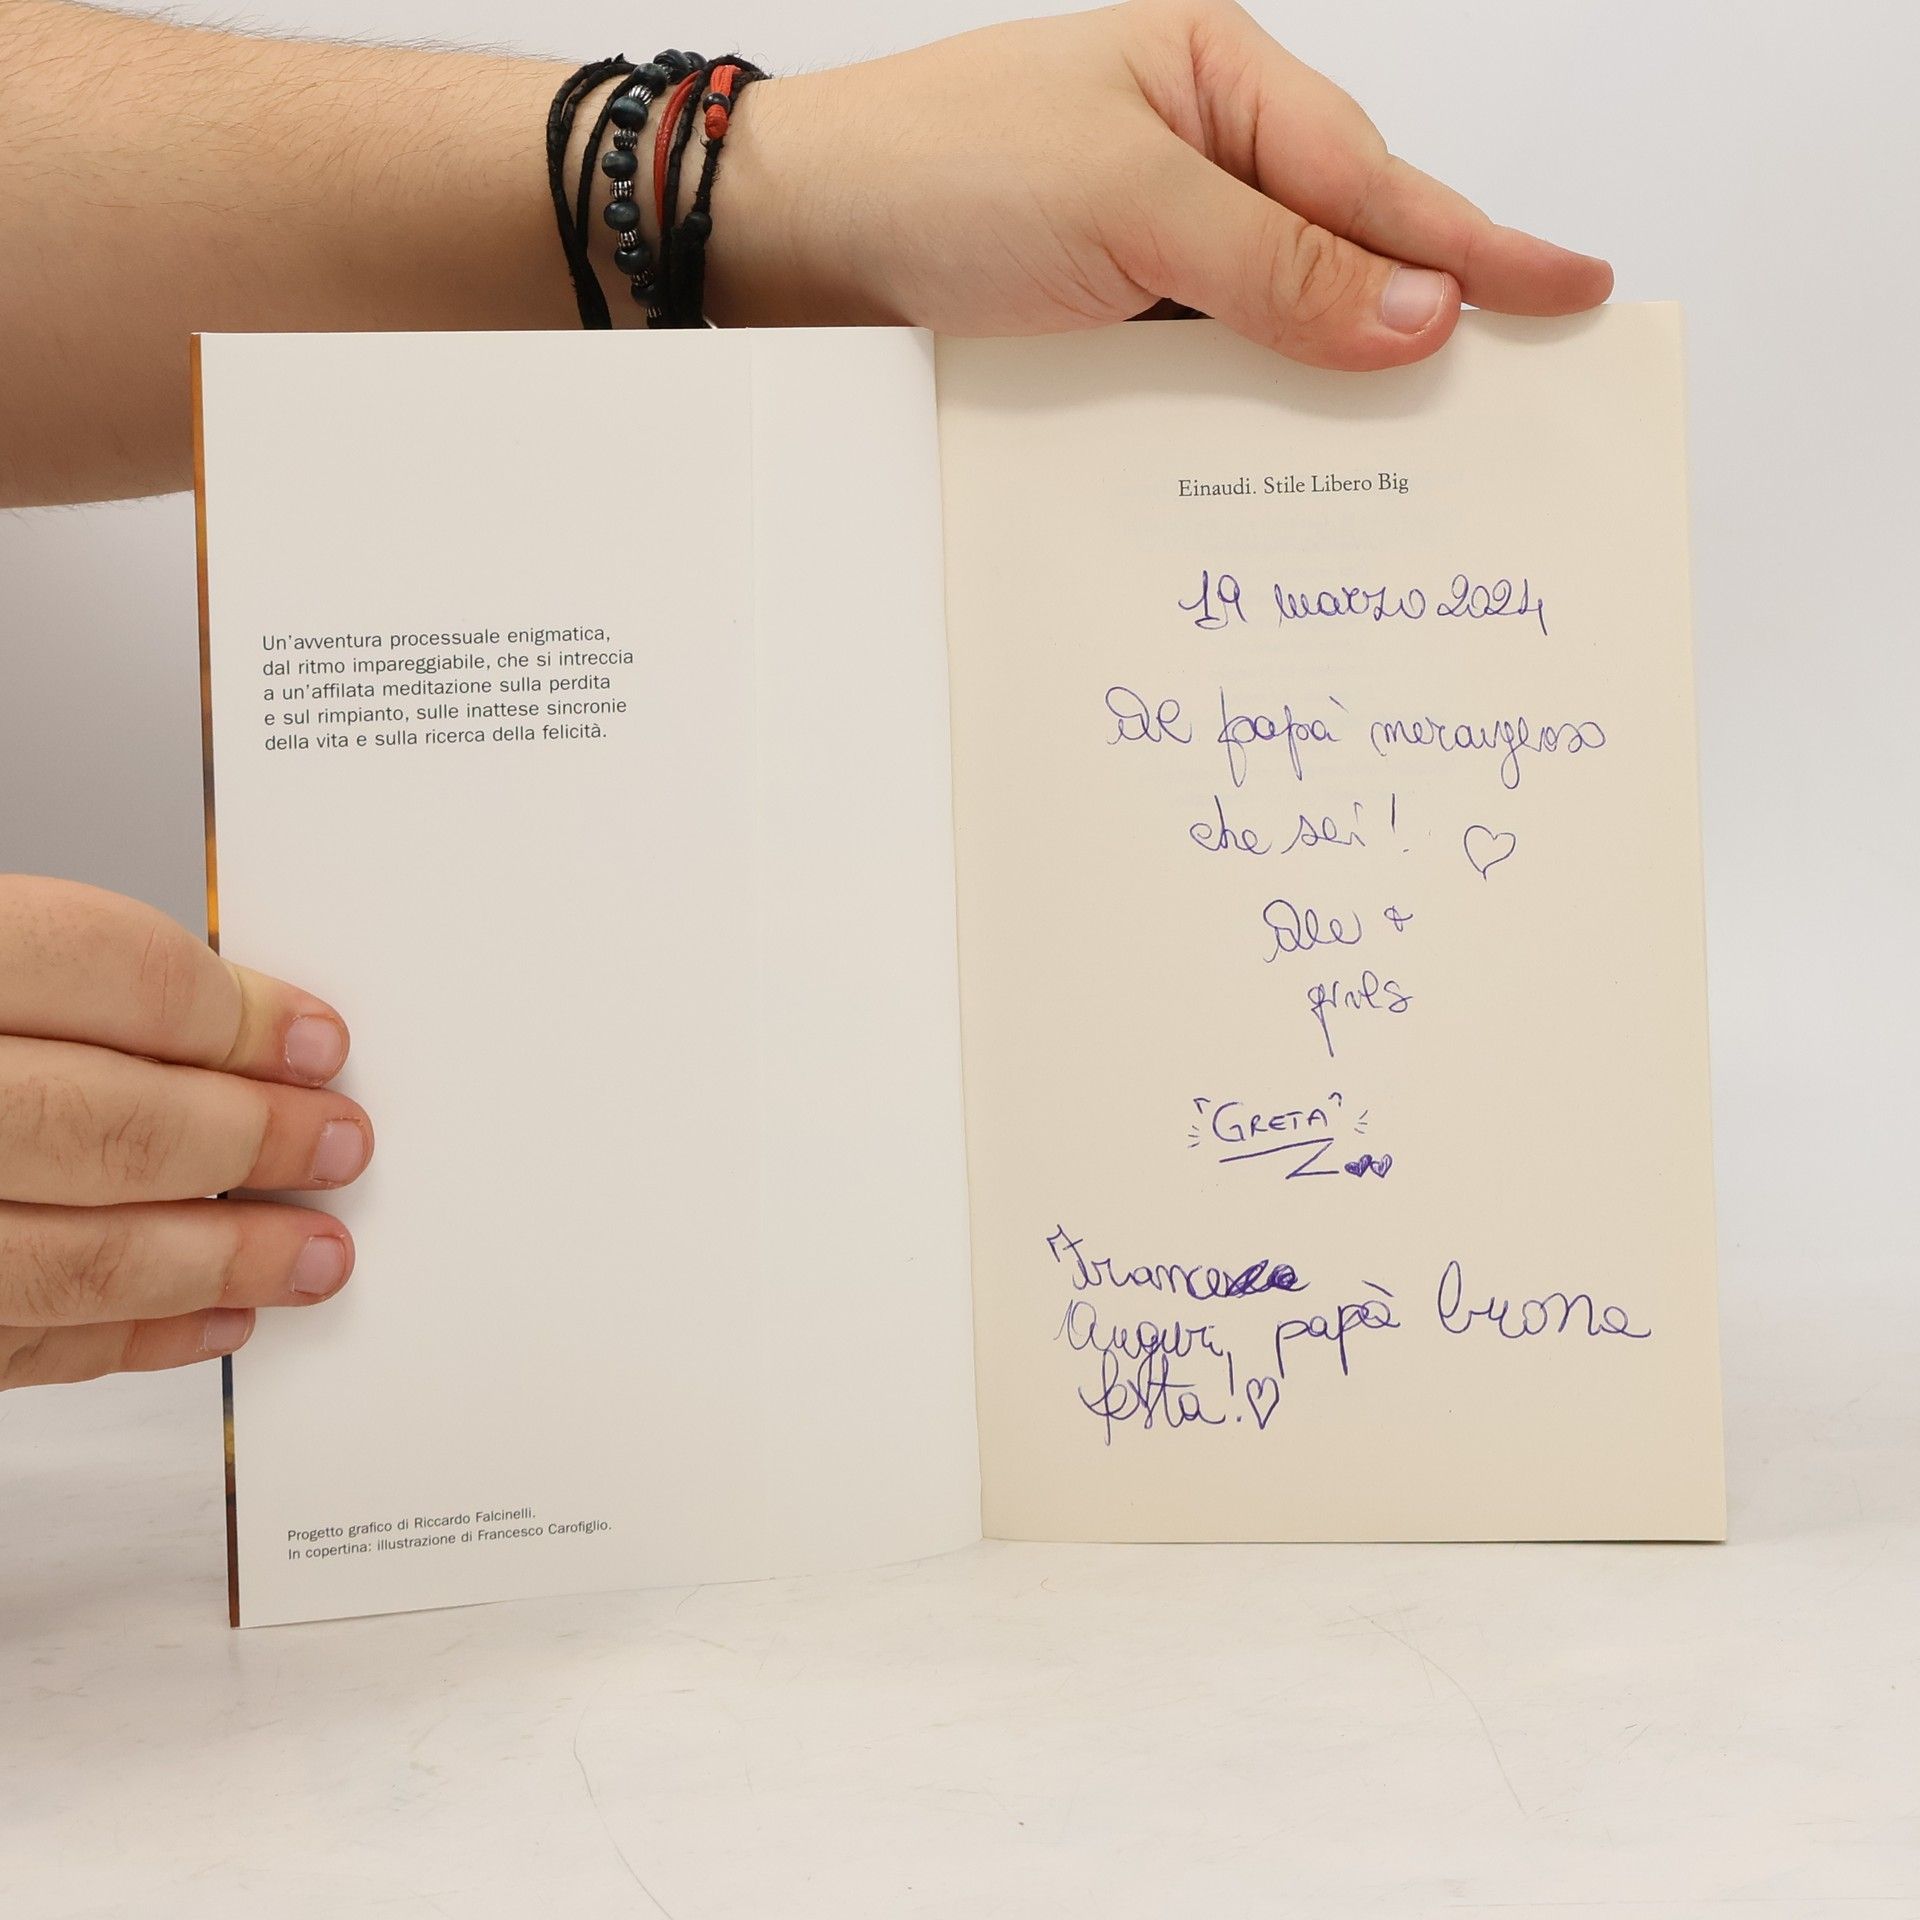 Un'avventura processuale enigmatica,
dal ritmo impareggiabile, che si intreccia
a un'affilata meditazione sulla perdita
e sul rimpianto, sulle inattese sincronie
della vita e sulla ricerca della felicità.
Progetto grafico di Riccardo Falcinelli.
In copertina: illustrazione di Francesco Carofiglio.
Einaudi. Stile Libero Big
19 marzo 2024
Al papà meraviglioso
che sei!
Ale +
girls
"GRETA"
Francesca
Auguri, papà buona
festa!